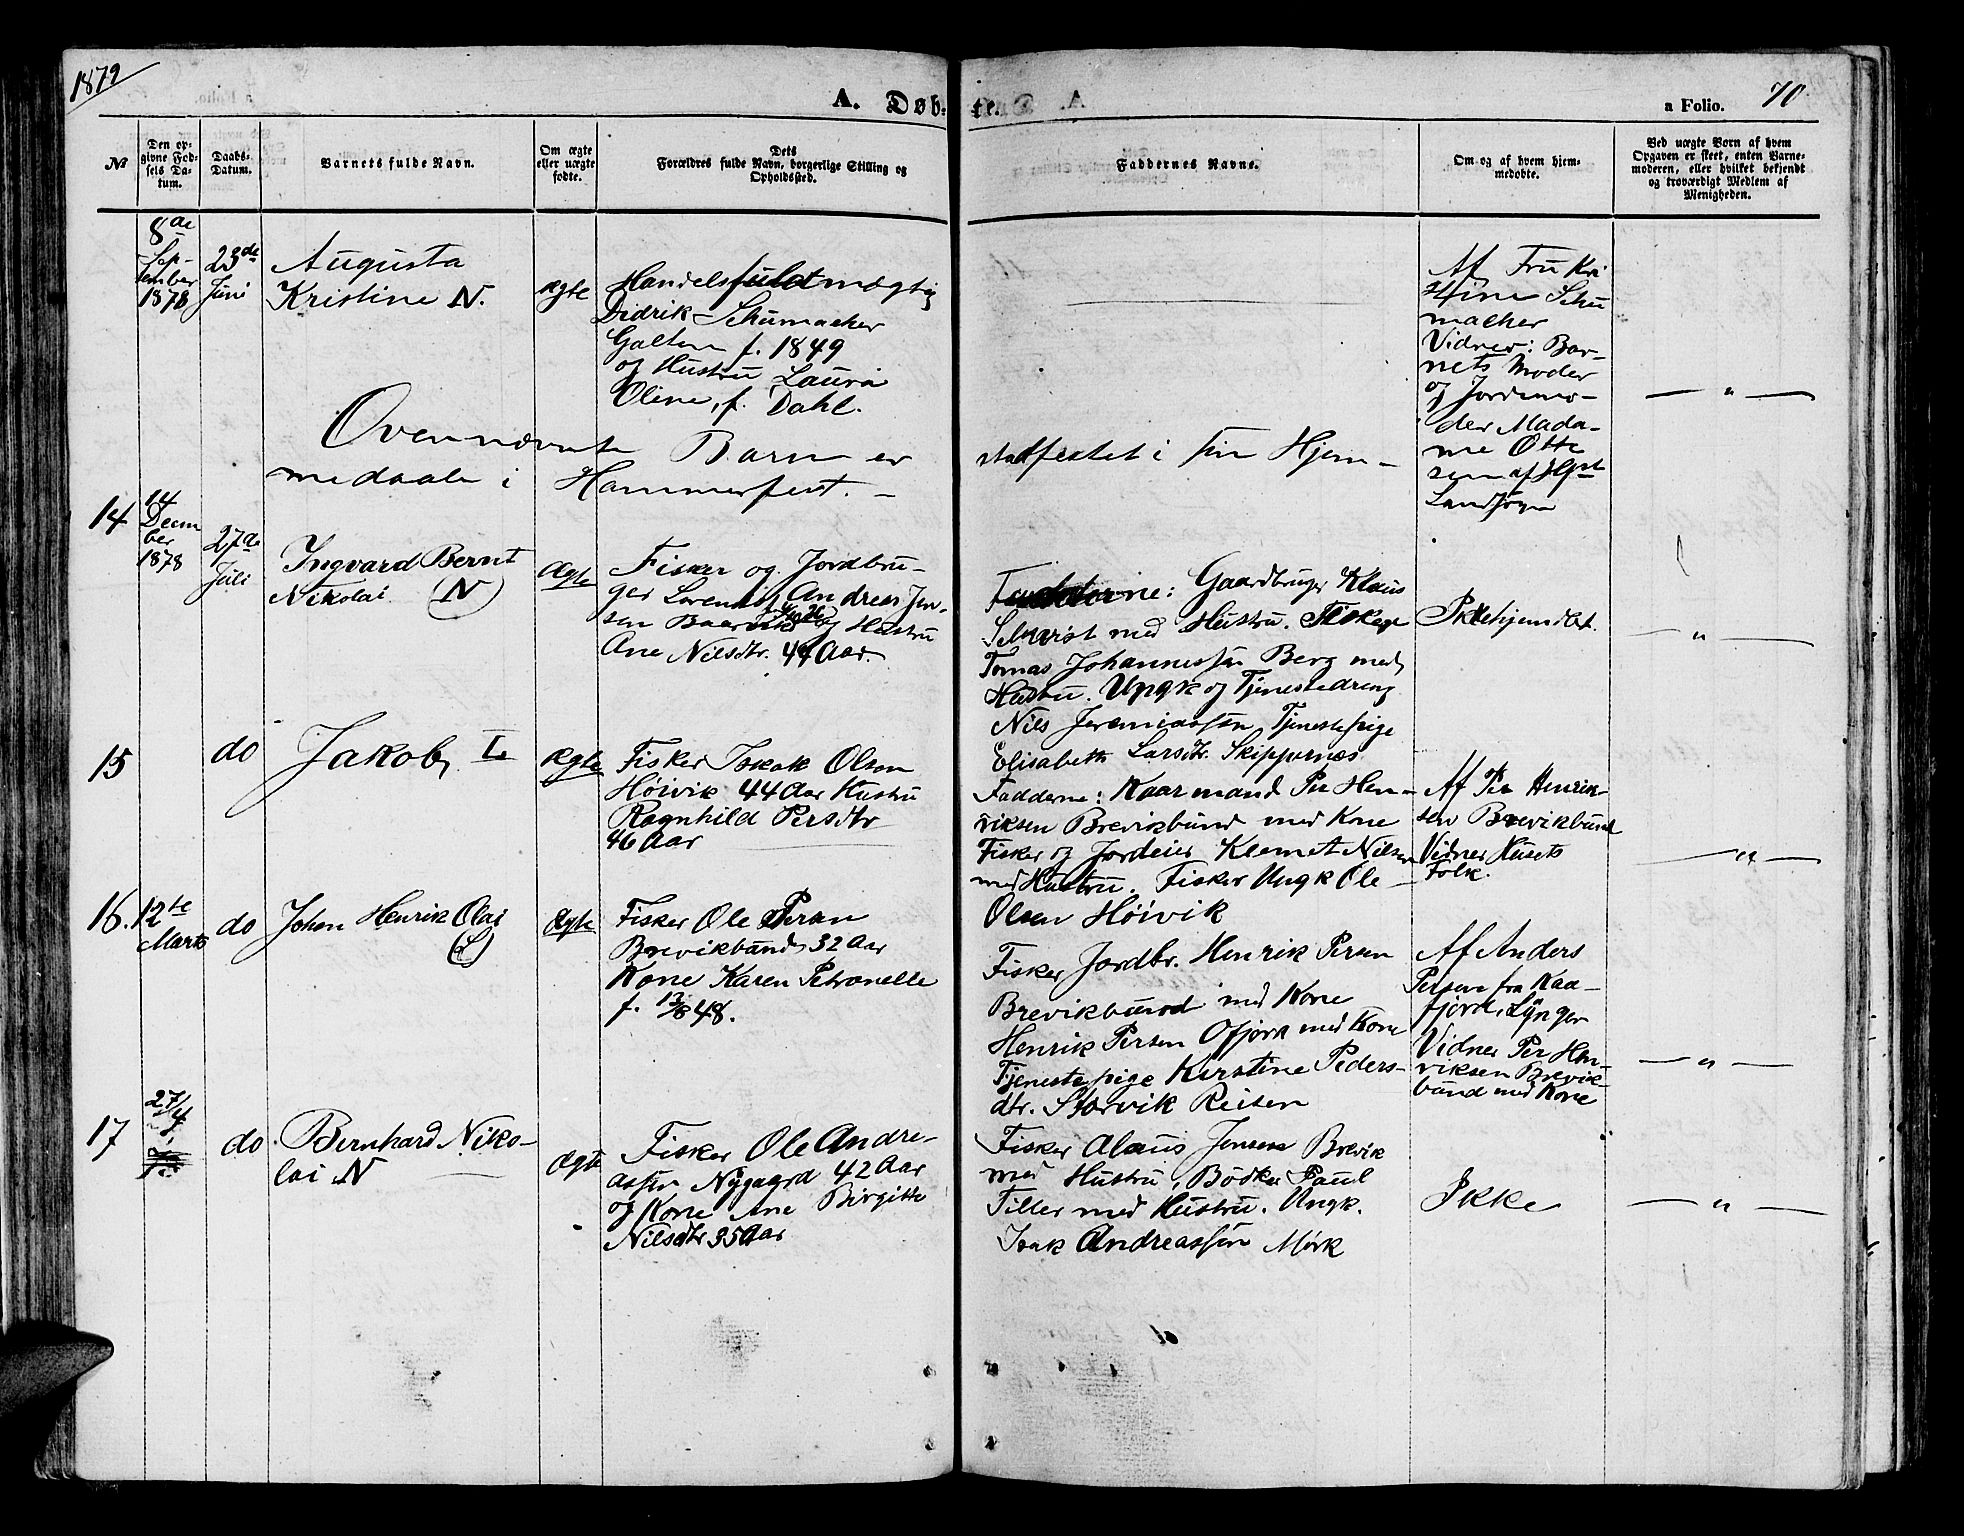 1879
A. Døb-
te.
a Folio.
70
№
Den op-
givne Fød-
sels Da-
tum.
Daabs-
Datum.
Barnets fulde Navn.
Om ægte
eller uægte
fødte.
Dets
Forældres fulde Navn, borgerlige Stilling og
Opholdssted.
Faddernes Navne.
Om og af hvem hjem-
medøbte.
Ved uægte Børn af hvem
Opgaven er skeet, enten Barne-
moderen, eller hvilket bekjendt
og troværdigt Medlem af
Menigheden.
8de
Sep-
tember
1878
23de
Juni
Augusta
Kristine N.
ægte
Handelsfuldtmægtig
Didrik Schumacher
f. 1849
og Hustru Laura
Oline, f. Dahl.
Af Fru Kri
stine Schu
macher
Vidner: Bar-
nets Moder
og Jordemo-
der Mada-
me Otte
sen af Hfst
Landsogn
— " —
Ovennævnte Barn er stadfæstet i sin Hjem-
medaab i Hammerfest. —
14
14
Decem
ber
1878
27de
Juli
Ingvard Bernt
Nikolai (N)
Ægte
Fisker og Jordbru-
ger Lorents Andreas Jen-
sen og Hustru
Ane Nilsdtr. 44 Aar.
Fadderne: Gaardbruger Klaus
med Hustru. Fisker
Tomas Johannessen Berg med
Hustru. Ungk og Tjenestedreng
Nils Jeremiassen, Tjenestepige
Elisabeth Larsdtr. Skippernæs
Ikke hjemdbt.
— " —
15
do
Jakob, L
Ægte
Fisker Isak Olsen
Høivik 44 Aar Hustru
Ragnhild Persdtr
46 Aar
Fadderne: Kaarmand Per Hen-
riksen Brevikbund med Kone
Fisker og Jordeier Klemet Nilsen
med Hustru. Fisker Ungk Ole
Olsen Høivik
Af Per Henrik-
sen Brevikbund
Vidner Husets
Folk.
— " —
16.
12te
Marts
do
Johan Henrik Olai
(L)
Ægte
Fisker Ole Persen
Brevikbund 32 Aar
Kone Karen Petronelle
f. 13/8 48.
Fisker Jordbr. Henrik Persen
Brevikbund med Kone
Henrik Persen Ofjord med Kone
Tjenestepige Kirstine Peders-
dtr. Storvik Reisen
Af Anders
Persen fra Kaa-
fjord, Lyngen
Vidner Per Hen-
riksen Brevik-
bund med Kone
— " —
17
27/4
do
Bernhard Niko-
lai N
Ægte
Fisker Ole Andre-
assen Nygaard 42 Aar
og Kone Ane Birgitte
Nilsdtr 35 Aar
Fisker Claus Jensen Brevik
med Hustru, Bødker Paul
Tiller med Hustru. Ungk.
Isak Andreassen Mørk
Ikke
— " —